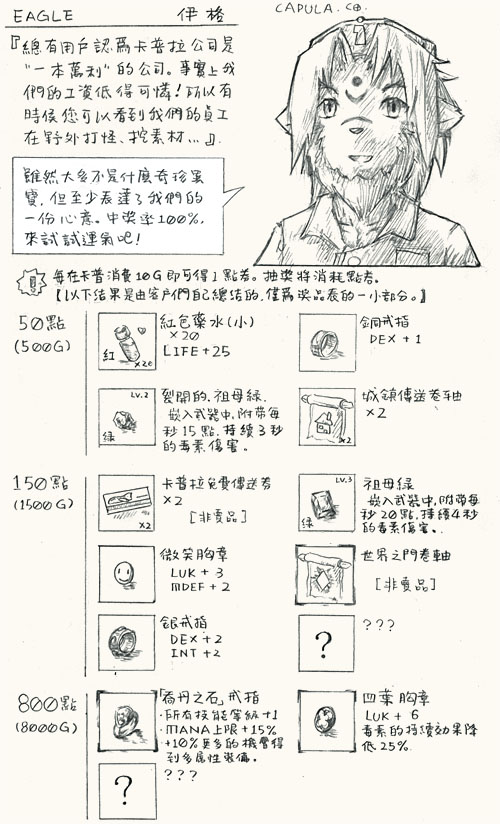 EAGLE 伊格
CAPULA. CO.
『總有用戶認為卡普拉公司是
"一本萬利"的公司。事實上我
們的工資低得可憐!所以有
時候您可以看到我們的員工
在野外打怪、挖素材…』
雖然大多不是什麼奇珍異
寶,但至少表達了我們的
一份心意。中獎率100%,
來試試運氣吧!
每在卡普消費10G即可得1點券。抽獎將消耗點券。
【以下結果是由客戶們自己總結的,僅為獎品表的一小部分。】
50點
(500G)
紅
x20
紅色藥水(小)
x20
LIFE+25
銅戒指
DEX+1
LV.2
綠
裂開的.祖母綠.
嵌入武器中,附帶每
秒15點.持續3秒
的毒素傷害。
x2
城鎮傳送卷軸
x2
150點
(1500G)
x2
卡普拉免費傳送券
x2
[非賣品]
LV.3
綠
祖母綠
嵌入武器中,附帶每
秒20點,持續4秒
的毒素傷害。
微笑胸章
LUK+3
MDEF+2
世界之門卷軸
[非賣品]
銀戒指
DEX+2
INT+2
?
???
800點
(8000G)
「喬丹之石」戒指
·所有技能等級+1
·MANA上限+15%
+10%更多的機會得
到多屬性裝備。
四葉胸章
LUK+6
毒素的持續效果降
低25%
?
???